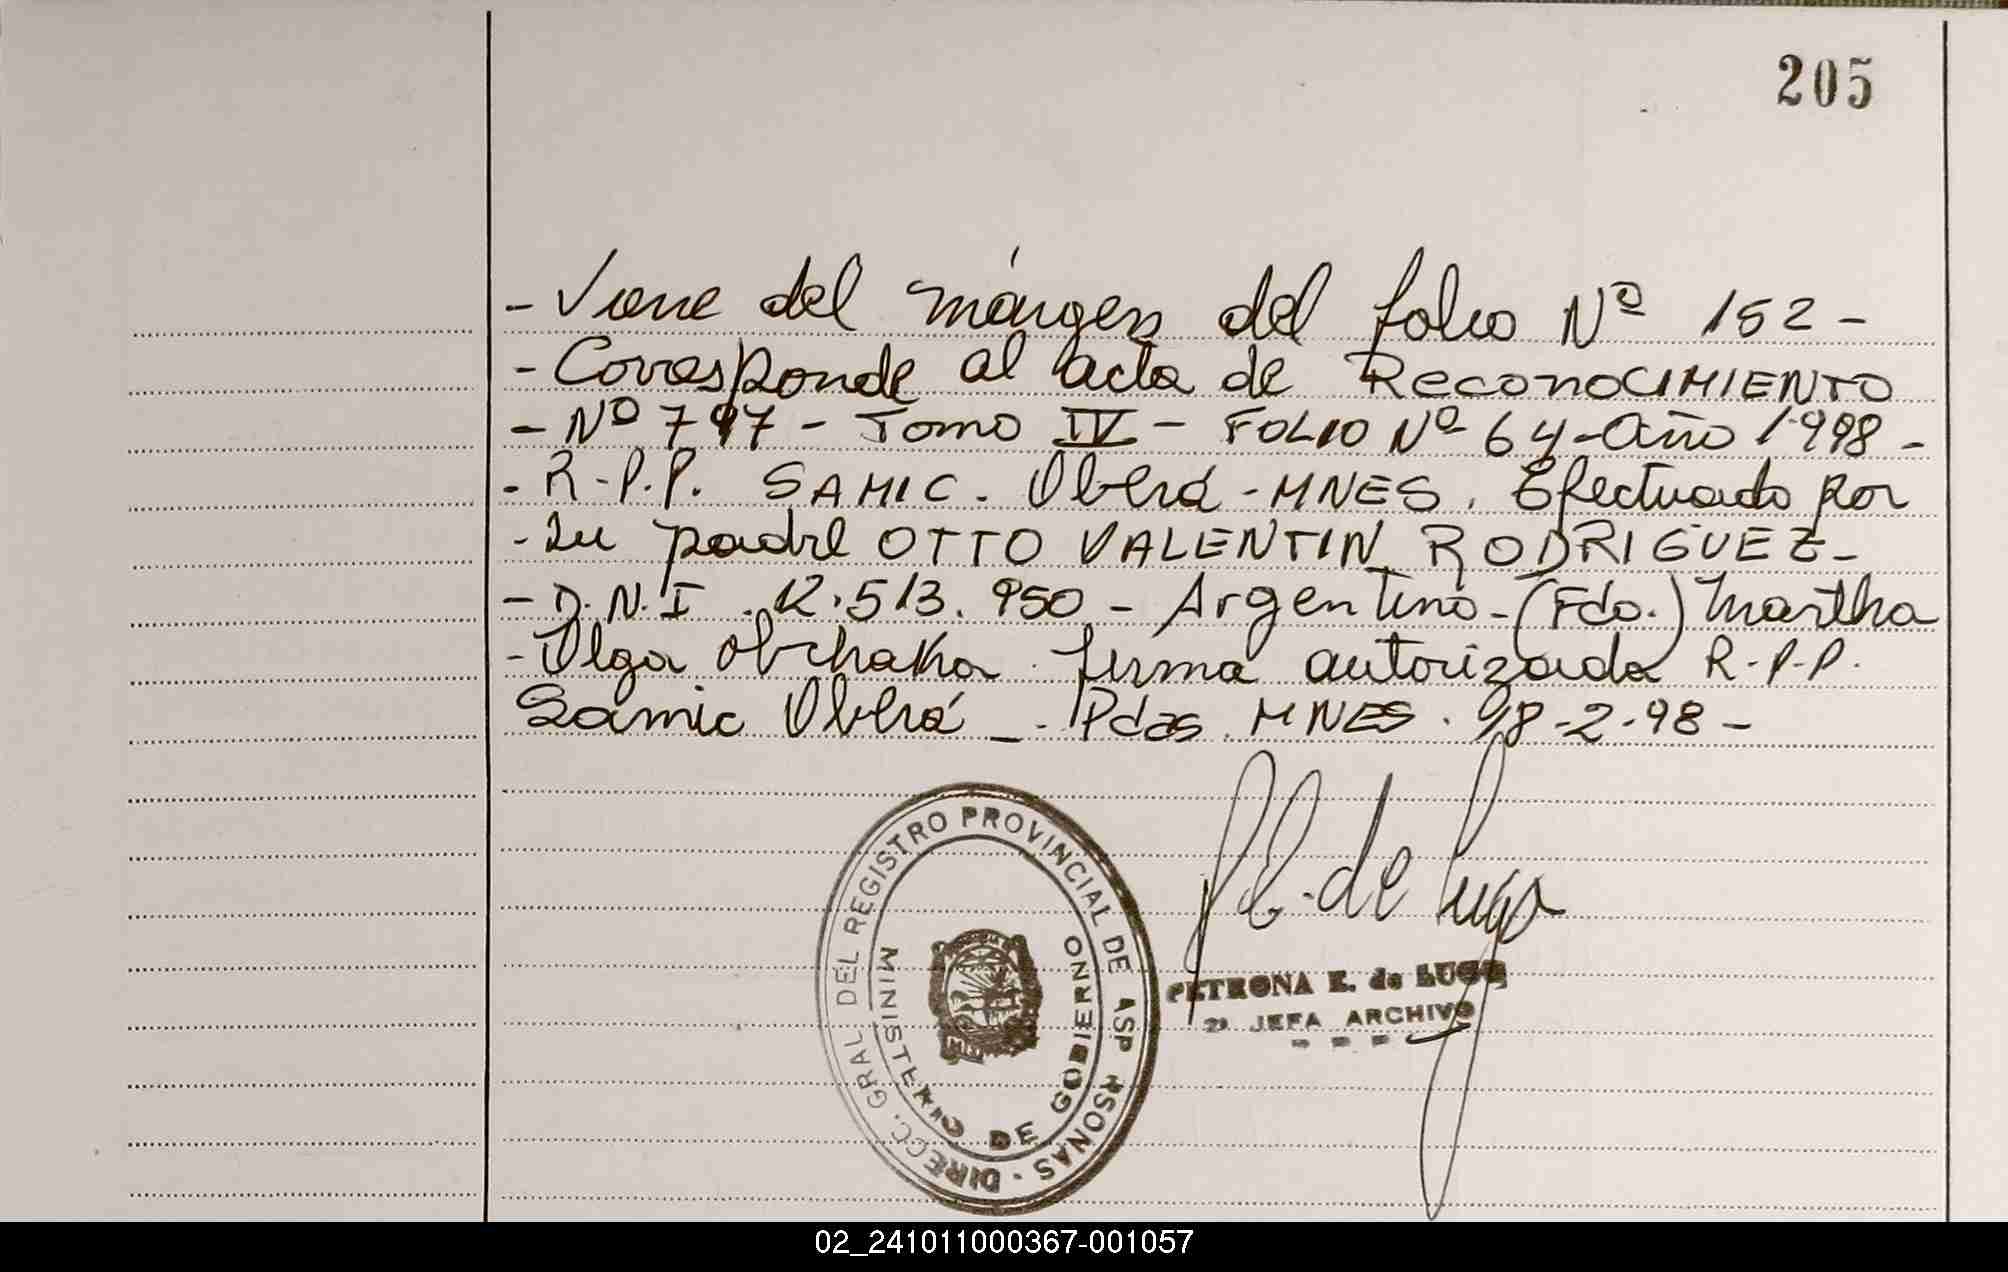 205
- Viene del márgen del folio Nº 152 -
- Corresponde al acta de RECONOCIMIENTO
- Nº 797 - Tomo IV - FOLIO Nº 64 - Año 1998 -
- R-P.P. SAMIC. Oberá - MNES. Efectuado por
- su padre OTTO VALENTIN RODRIGUEZ -
- D.N.I. 12.513.950 - Argentino - (Fdo.) Martha
- Olga Obchaka firma autorizada R-P-P.
Samic Oberá - Pdas MNES. 18-2-98 -
P.E. de Lugo
PETRONA E. de LUGO
2ª JEFA ARCHIVO
DIRECC. GRAL DEL REGISTRO PROVINCIAL DE ASP RSONAS
MINISTERIO DE GOBIERNO
02_241011000367-001057